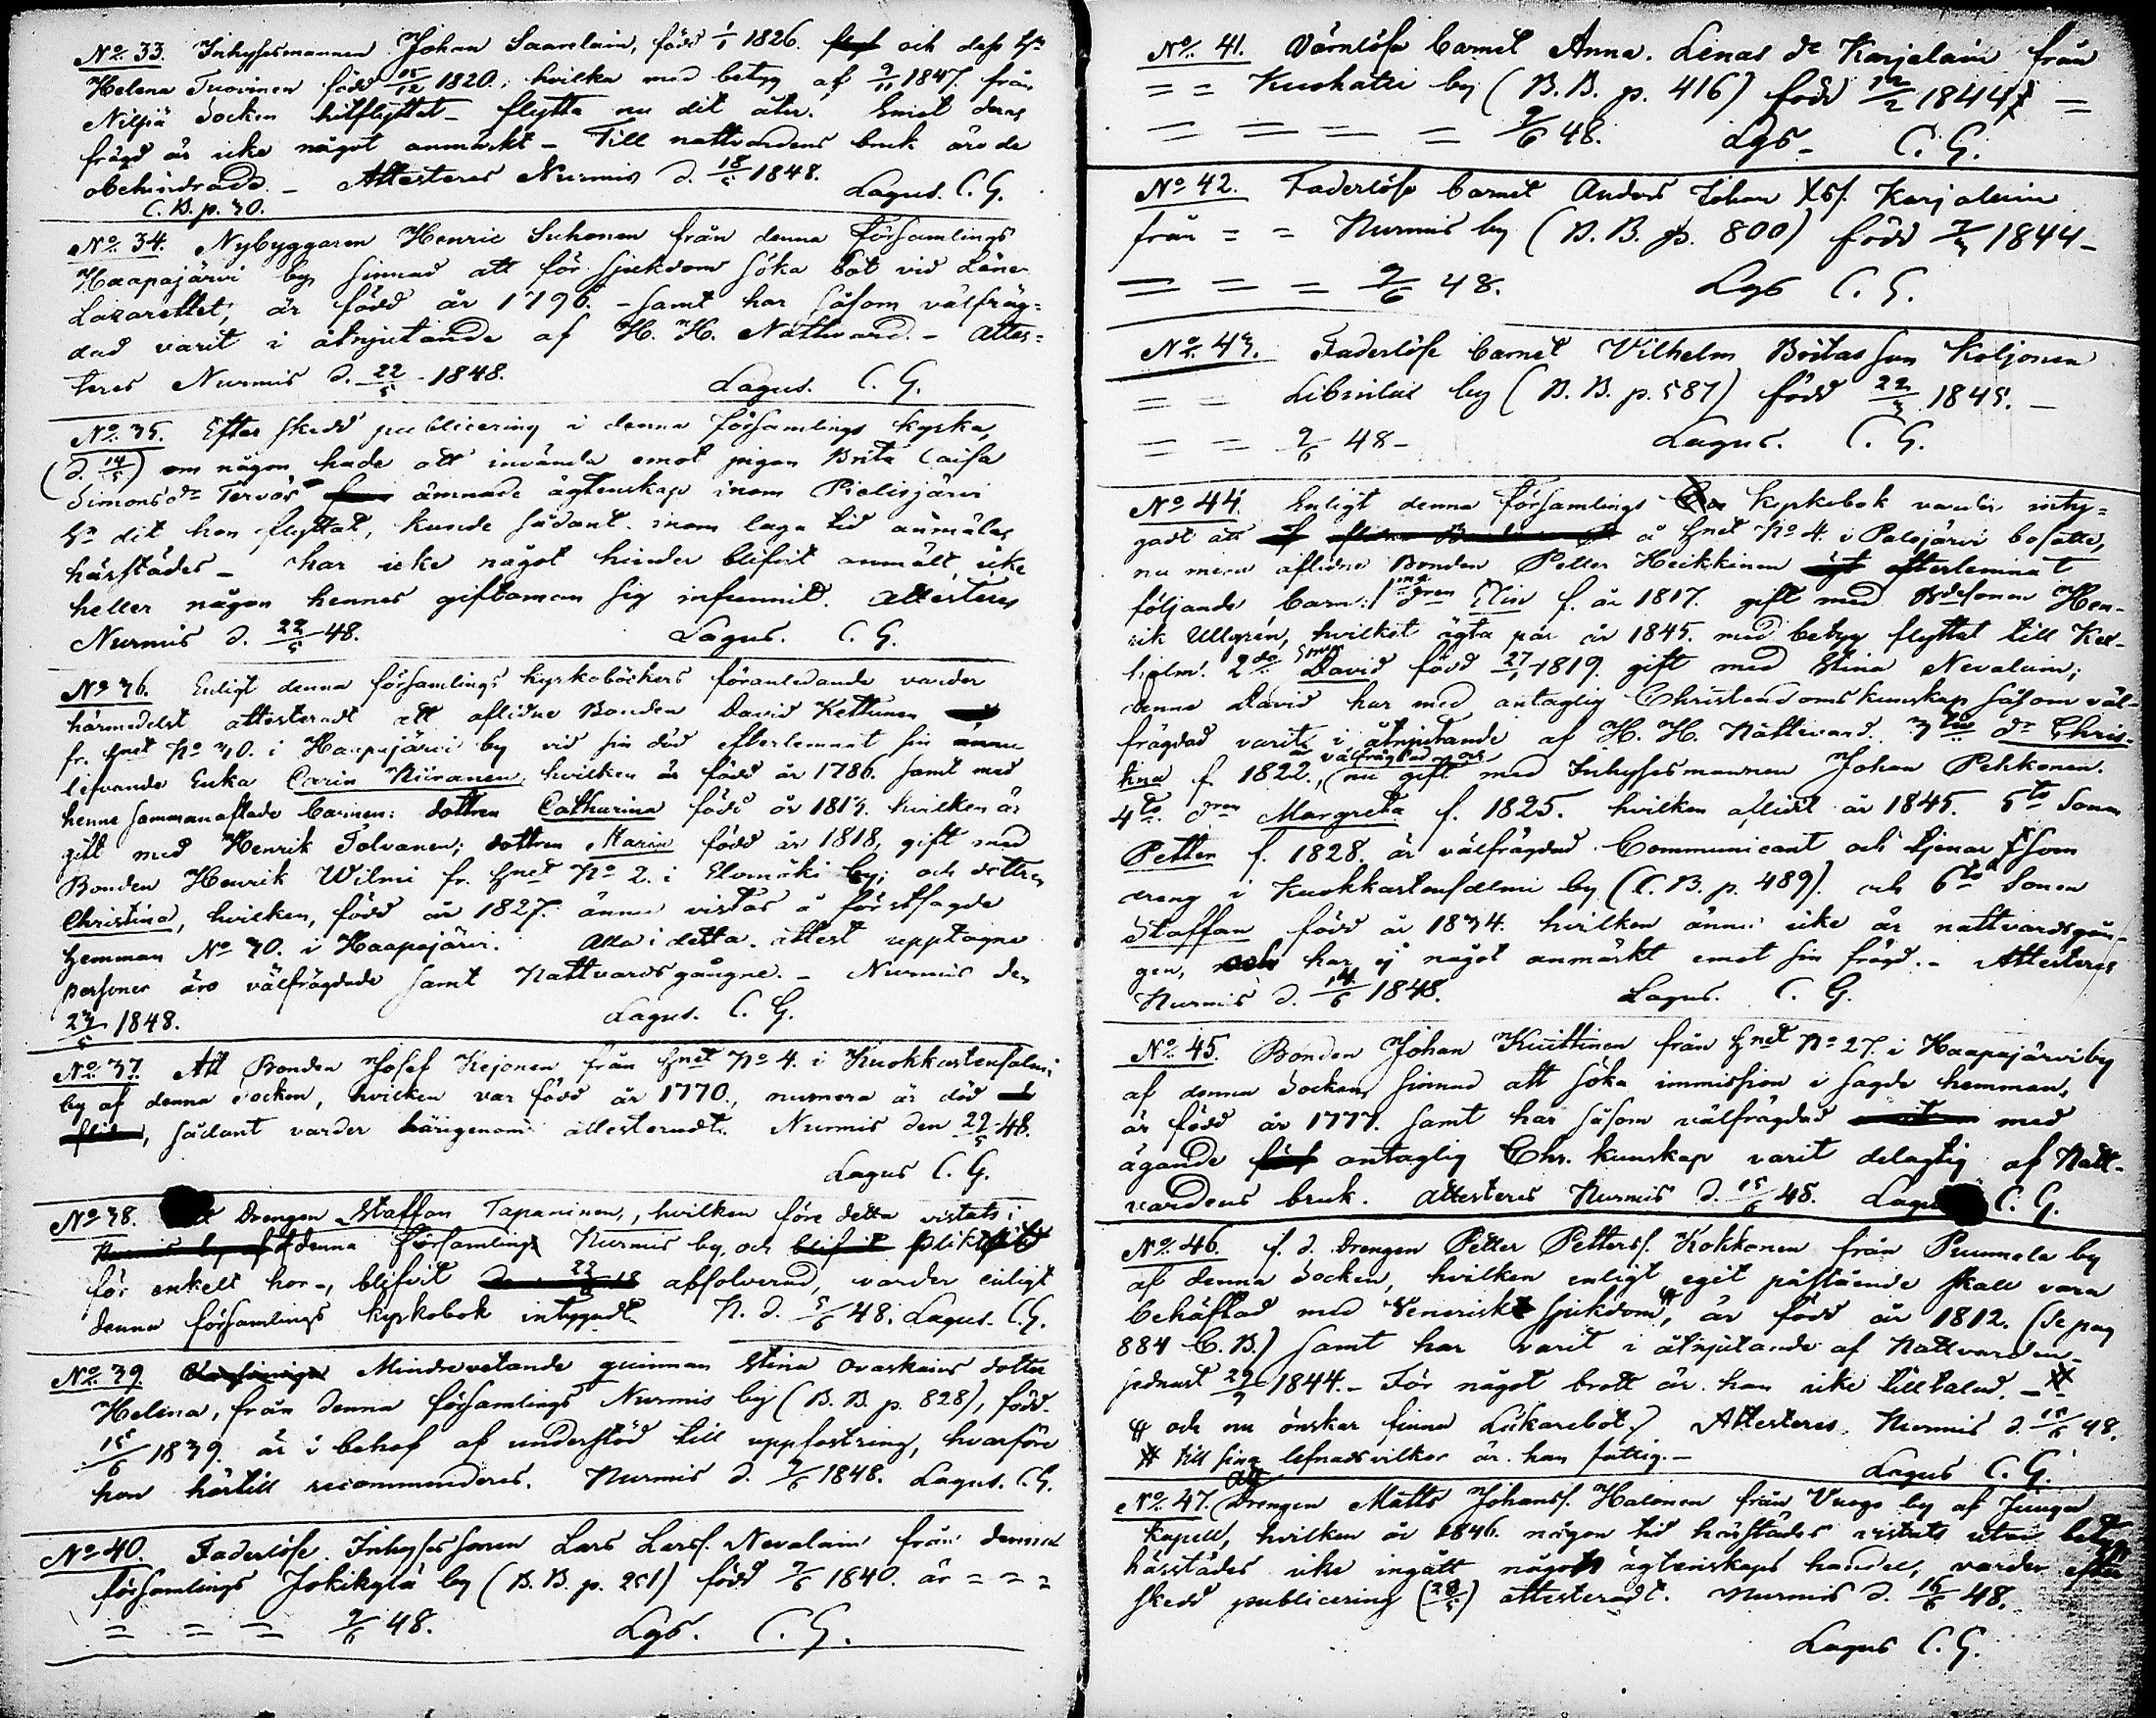 No 33. Inhysesmannen Johan Saarelain, född 1/1 1826. och dess Hu
Helena Tuovinen född 15/12 1820, hvilka med betyg af 9/11 1847. från
Nilsiä Socken hitflyttat - flytta nu dit åter. Emot deras
frägd är icke något anmärkt - Till nattvardens bruk äro de
obehindrade. - Attesteras Nurmis d. 18/5 1848. Lagus. C. G.
C. B. p. 30.
No 34. Nybyggaren Henric Suhonen från denna Församlings
Haapajärvi by, sinnad att för sjukdom söka bot vid Läne
Lazarettet, är född år 1796. - samt har såsom välfräg=
dad varit i åtnjutande af H. H. Nattvard. - Attes=
teras Nurmis d. 22/5 1848. Lagus. C. G.
No 35. Efter skedd publicering i denna församlings kyrka,
(d. 14/5) om någon hade att invända emot pigan Brita Caisa
Simonsdr Tervos ämnade ägtenskap inom Pielisjärvi
Sn dit hon flyttat, kunde sådant inom laga tid anmälas
härstädes - har icke något hinder blifvit anmält, icke
heller någon hennes giftoman sig infunnit. Attesteras
Nurmis d. 22/5 48. Lagus. C. G.
No 36. Enligt denna församlings kyrkoböckers föranledande varder
härmedelst attesteradt att aflidne Bonden David Kettunen
fr. Hmet No 30. i Haapajärvi by vid sin död efterlemnat sin ännu
lefvande Enka Carin Niiranen, hvilken är född år 1786. samt med
henne sammanaflade barnen: dottren Catharina född år 1813. hvilken är
gift med Henrik Tolvanen; dottren Karin född år 1818, gift med
Bonden Henrik Wilmi fr. Hmet No 2. i Elomäki by; och dottren
Christina, hvilken, född år 1827. ännu vistas å förstsagde
Hemman No 30. i Haapajärvi. Alla i detta attest upptagne
personer äro välfrägdade samt Nattvardsgångne. - Nurmis den
23/5 1848. Lagus. C. G.
No 37. Att Bonden Josef Kejonen från Hmet No 4. i Kuokkastensalmi
by af denna Socken, hvilken var född år 1770., numera är död
, sådant varder härigenom attesteradt. Nurmis den 22/5 48.
Lagus C. G.
No 38. Drengen Staffan Tapaninen, hvilken före detta vistats i
denna Församlings Nurmis by, och
för enkelt hor -, blifvit absolverad, varder enligt
denna församlings kyrkobok intygadt. N. d. 5/6 48. Lagus. C. G.
No 39. Mindrevetande qvinnan Stina Ovaskains dotter
Helena, från denna församlings Nurmis by (B. B. p. 828), född
15/6 1839. är i behof af understöd till uppfostring, hvarföre
hon härtill recommenderes. Nurmis d. 9/6 1848. Lagus. C. G.
No 40. Faderlöse Inhyses sonen Lars Larss. Nevalain från denna
församlings Jokikylä by (B. B. p. 251) född 7/6 1840. är = = =
= = = 9/6 48. Lgs. C. G.
No 41. Värnlösa barnet Anna Lenas dr Karjalain från
= = Kuohatti by (B. B. p. 416) född 12/2 1844 =
= = = = 9/6 48. Lgs - C. G.
No 42. Faderlöse barnet Anders Johan Karjalain
från = = Nurmis by (B. B. p. 800) född 7/3 1844 -
= = = 9/6 48. Lgs C. G.
No 43. Faderlöse barnet Vilhelm Britas Son Koljonen
= = by (B. B. p. 587) född 22/3 1845. -
= = 9/6 48 - Lagus. C. G.
No 44. Enligt denna församlings kyrkobok varder inty=
gadt att å Hmet No 4. i Palojärvi bosatte,
nu mera aflidne Bonden Petter Heikkinen efterlemnat
följande barn: 1ma dren Elin f. år 1817. gift med Hen-
rik Ullgrén, hvilket ägta par år 1845. med betyg flyttat till Kex-
holm. 2do Sonen David född 27/ 1819. gift med Stina Nevalain;
denna David har med antaglig Christendomskunskap såsom väl-
frägdad varit i åtnjutande af H. H. Nattvard. 3tio dr Chris-
tina f. 1822., är välfrägdad och nu gift med Inhysesmannen Johan Pehkonen.
4to dren Margreta f. 1825. hvilken aflidit år 1845. 5to Sonen
Petter f. 1828. är välfrägdad Communicant och tjenar som
dreng i Kuokkastensalmi by (C. B. p. 489). och 6to Sonen
Staffan född år 1834. hvilken ännu icke är nattvardsgån-
gen, har ej något anmärkt emot sin frägd. - Attesteras
Nurmis d. 14/6 1848. Lagus. C. G.
No 45. Bonden Johan Kuittinen från Hmet No 27. i Haapajärvi by
af denna Socken, sinnad att söka immission i sagde hemman,
är född år 1777. samt har såsom välfrägdad med
ägande antaglig Chr. kunskap varit delagtig af Natt-
vardens bruk. Attesteras Nurmis d. 15/6 48. Lagus C. G.
No 46. f. d. Drengen Petter Petterss. Kokkonen från Puumala by
af denna Socken, hvilken enligt eget påstående skall vara
behäftad med Venerisk sjukdom, är född år 1812. (se pag
884 C. B.) samt har varit i åtnjutande af Nattvarden
sednast 29/9 1844. - För något brott är han icke tilltalad. -
och nu önskar finna Läkarebot. Attesteras. Nurmis d. 15/6 48.
till sina lefnadsvilkor är han fattig. - Lagus C. G.
No 47. Att Drengen Matts Johanss. Halonen från Vuogo by af Juuga
kapell, hvilken år 1846. någon tid härstädes vistats utan betyg
härstädes icke ingått något ägtenskaps handel, varder efter
skedd publicering (28/5) attesteradt. Nurmis d. 16/6 48.
Lagus C. G.